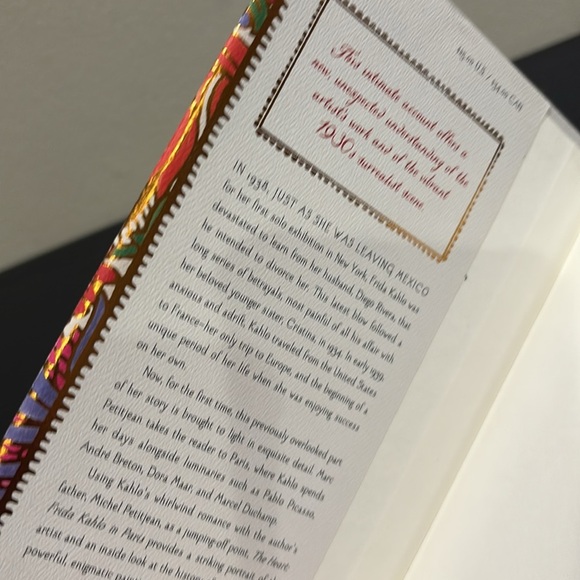 $25.00 U.S. / $34.00 CAN
This intimate account offers a
new, unexpected understanding of the
artist's work and of the vibrant
1930s surrealist scene.
IN 1938, JUST AS SHE WAS LEAVING MEXICO
for her first solo exhibition in New York, Frida Kahlo was
devastated to learn from her husband, Diego Rivera, that
he intended to divorce her. This latest blow followed a
long series of betrayals, most painful of all his affair with
her beloved younger sister, Cristina, in 1934. In early 1939,
anxious and adrift, Kahlo traveled from the United States
to France—her only trip to Europe, and the beginning of a
unique period of her life when she was enjoying success
on her own.
Now, for the first time, this previously overlooked part
of her story is brought to light in exquisite detail. Marc
Petitjean takes the reader to Paris, where Kahlo spends
her days alongside luminaries such as Pablo Picasso,
André Breton, Dora Maar, and Marcel Duchamp.
Using Kahlo's whirlwind romance with the author's
father, Michel Petitjean, as a jumping-off point, The Heart
Frida Kahlo in Paris provides a striking portrait of the
artist and an inside look at the history of
powerful, enigmatic